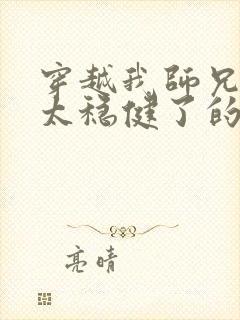 穿越我師兄
太穩健了的
亮晴